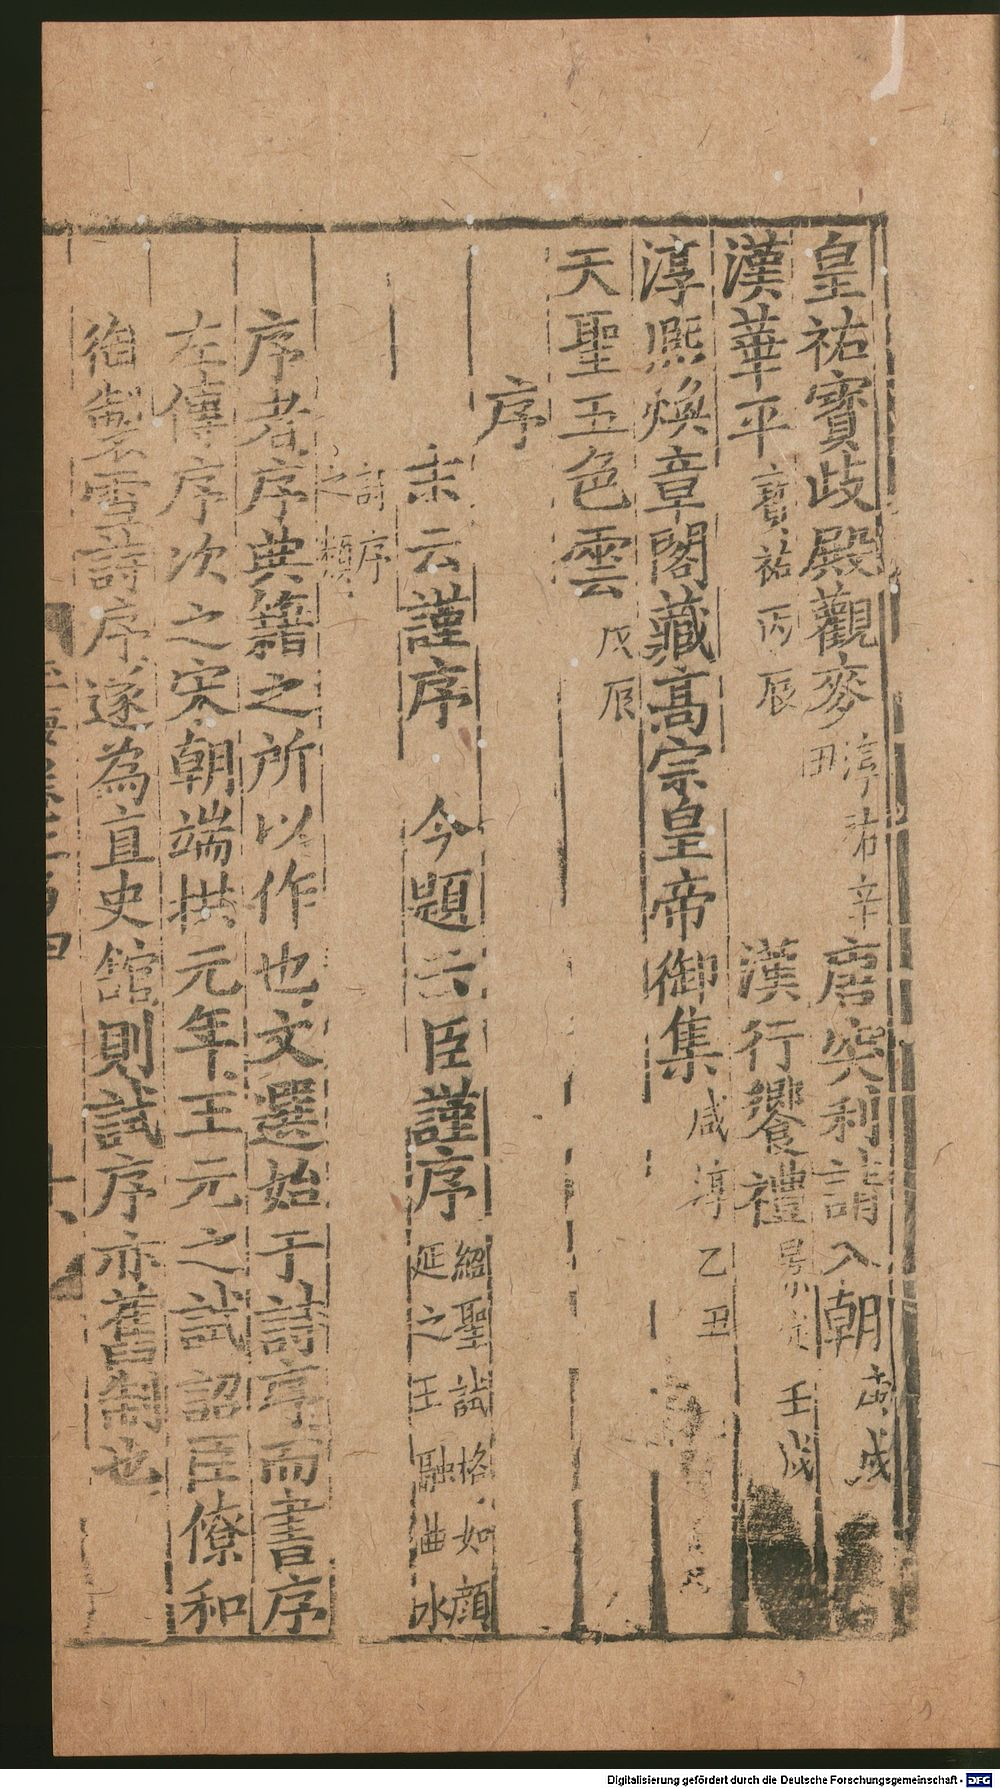 皇祐寶歧殿觀麥淳祐辛丑 唐突利請入朝庚戌
漢華平寶祐丙辰 漢行饗禮景定壬戌
淳熙煥章閣藏高宗皇帝御集咸淳乙丑
天聖五色雲戊辰
序
末云謹序 今題云臣謹序紹聖試格如顏延之王融曲水
詩序之類
序者序典籍之所以作也文選始于詩序而書序
左傳序次之宋朝端拱元年王元之試詔臣僚和
御製雪詩序遂為直史館則試序亦舊制也
Digitalisierung gefördert durch die Deutsche Forschungsgemeinschaft - DFG